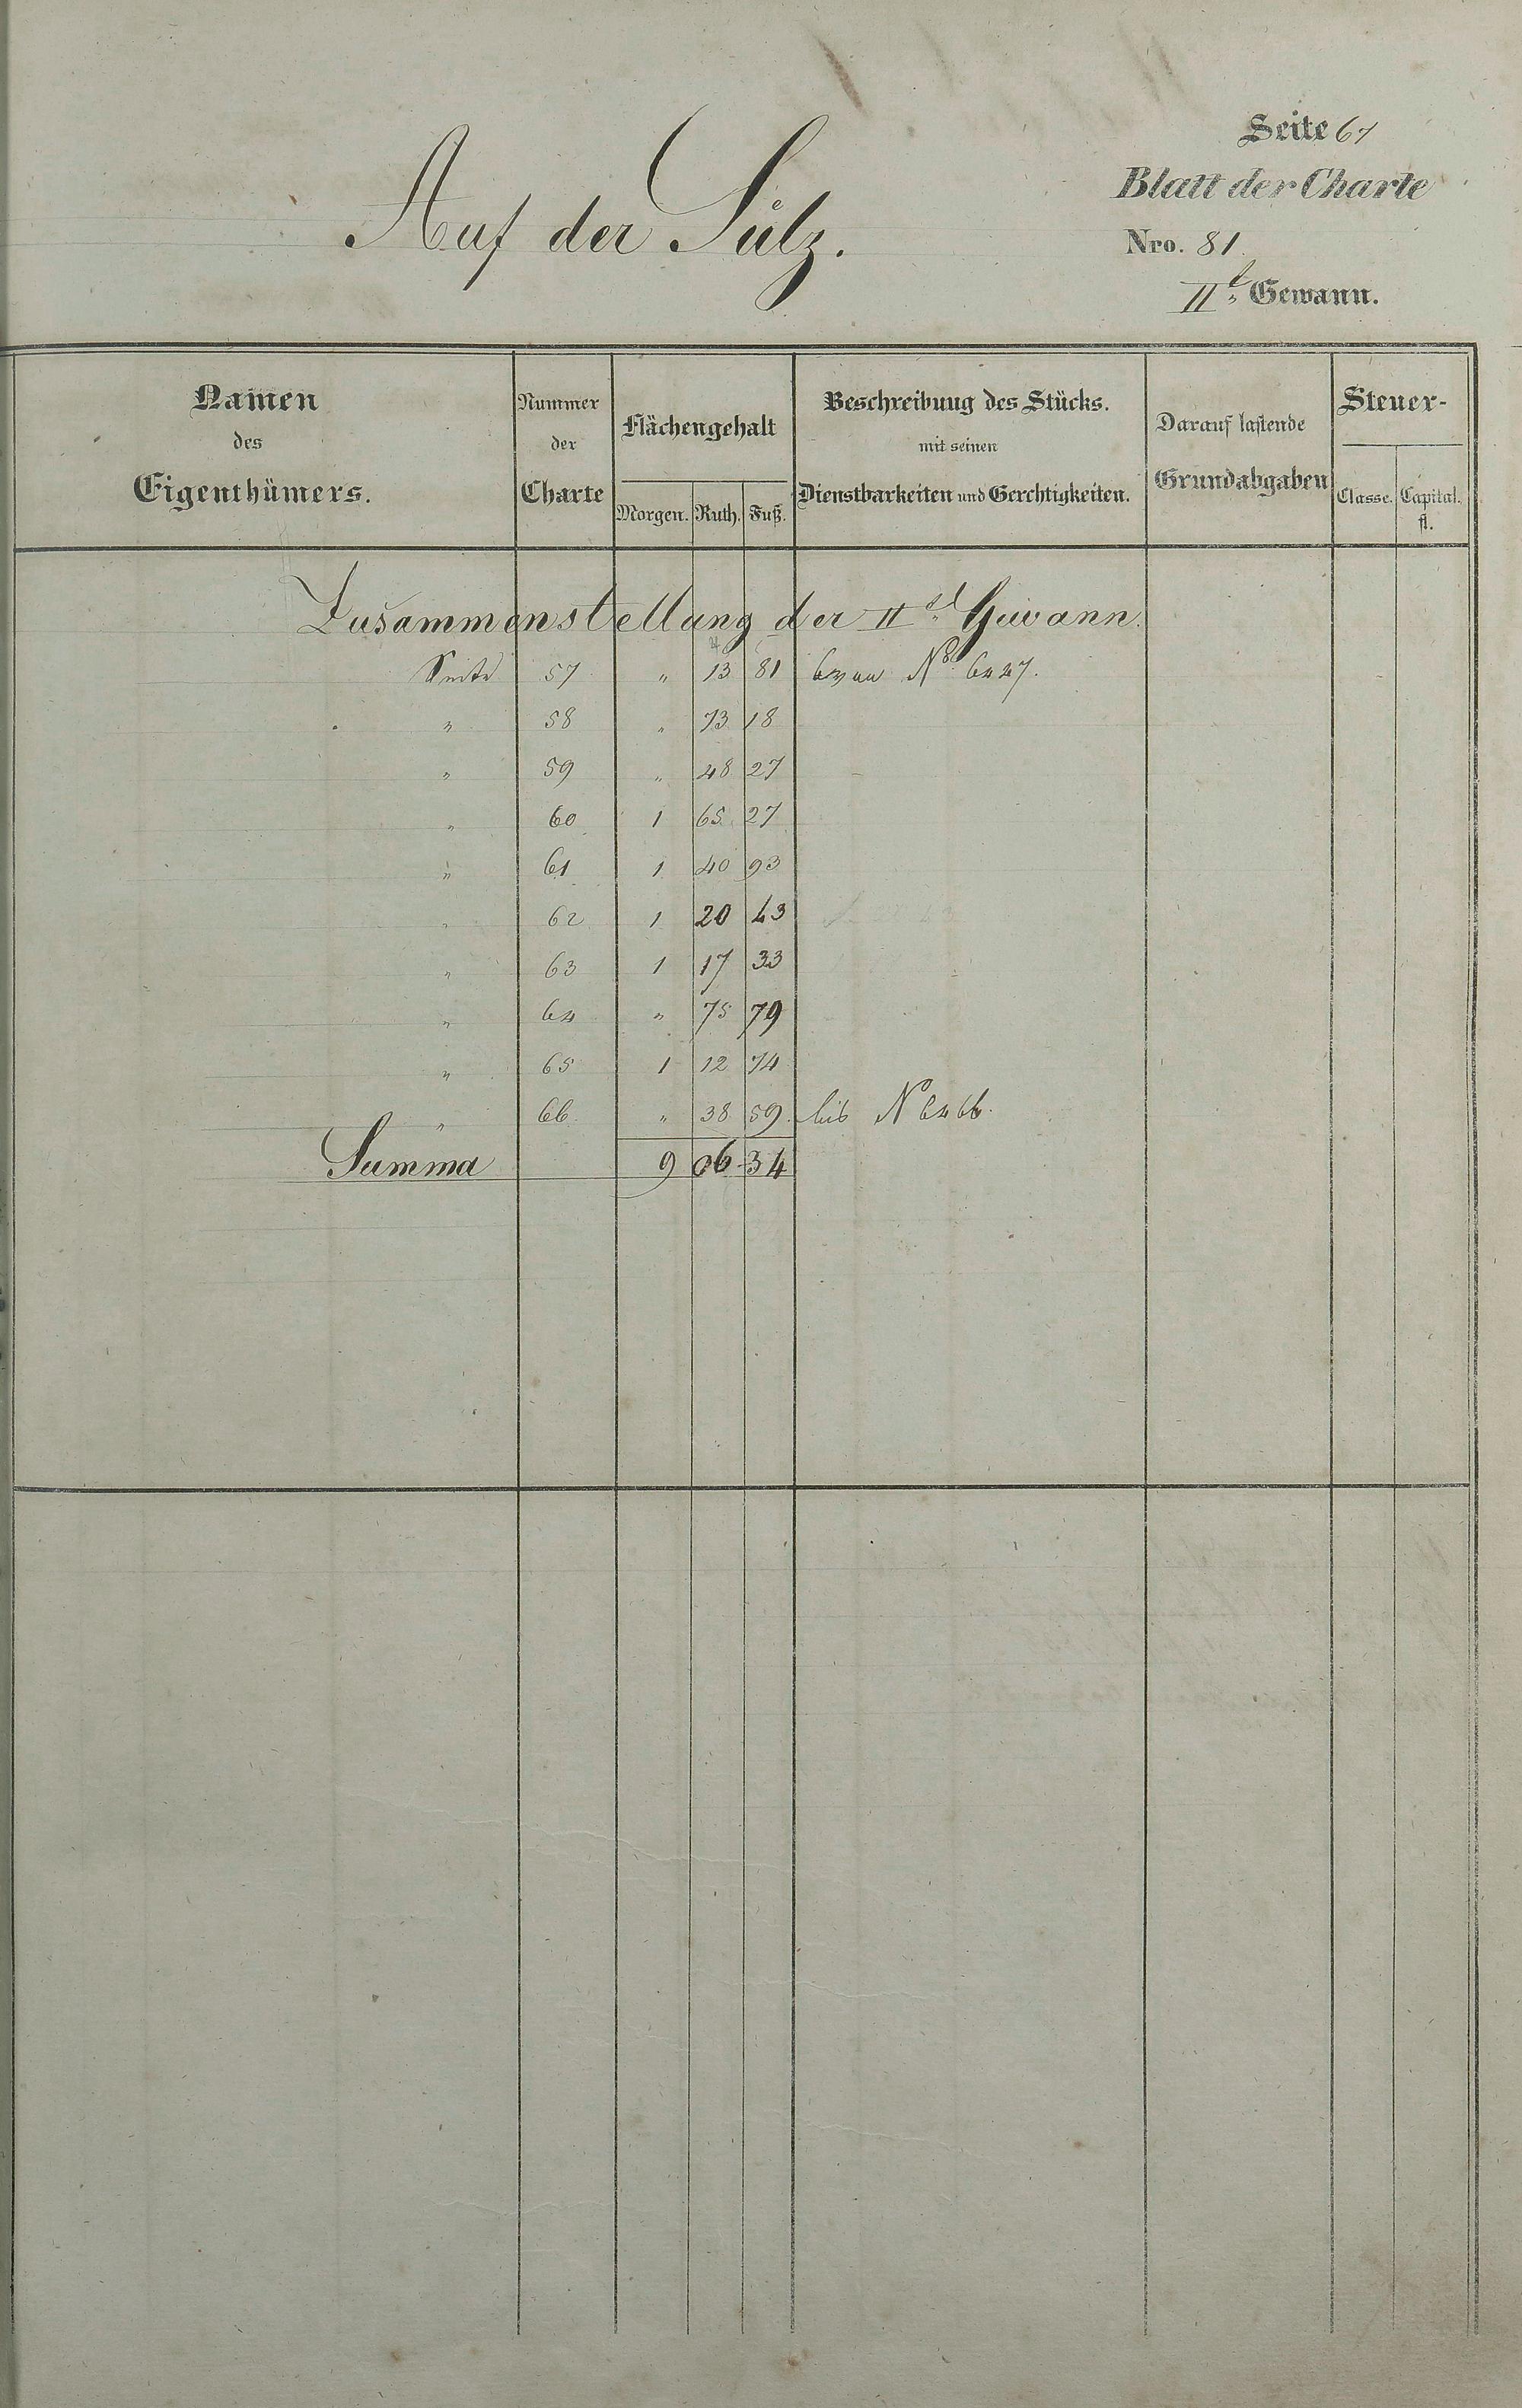 Seite 67
Blatt der Charte
Auf der Sülz.
Nro. 81.
IIt. Gewann.
Namen des Eigenthümers.
Nummer der Charte
Flächengehalt
Morgen. Ruth. Fuß.
Beschreibung des Stücks. mit seinen Dienstbarkeiten und Gerechtigkeiten.
Darauf lastende Grundabgaben
Steuer-
Classe. Capital. fl.
Zusammenstellung der IIt. Gewann.
Seite 57 " 13 81 von No. 6427.
" 58 " 73 18
" 59 " 48 27
" 60 1 65 27
" 61 1 40 93
" 62 1 20 43
" 63 1 17 33
" 64 " 75 79
" 65 1 12 74
" 66 " 38 59 bis N 6466.
Summa 9 06 34